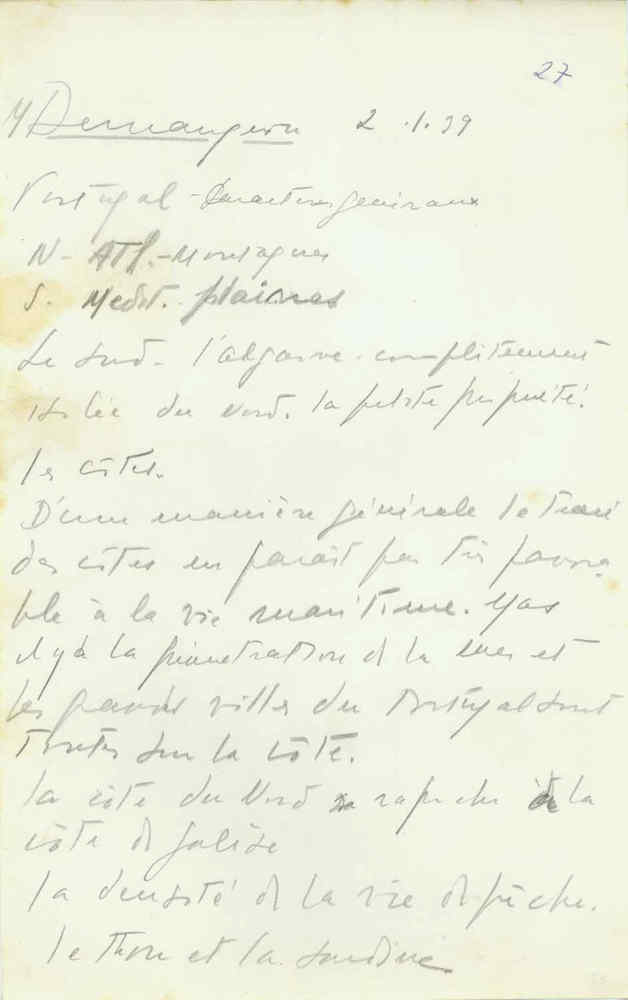 27
M Demangeon 2.1.39
Portugal - Caractères généraux
N - Atl. - Montagnes
S. Medit. plaines
Le sud - l'algarve - complètement
isolée du Nord. la petite propriété.
les côtes.
D'une manière générale le tracé
des côtes en parait pas très favora-
ble à la vie maritime. Mas
il y à la pénétration d la mer et
les grandes villes du Portugal sont
toutes sur la côte.
la côte du Nord rapproche de la
côte d galise
la densité d la vie d pêche.
le thon et la sardine